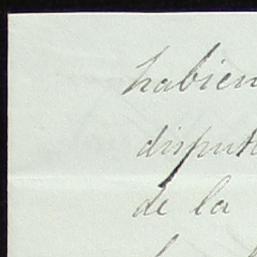 habien
disput
de la